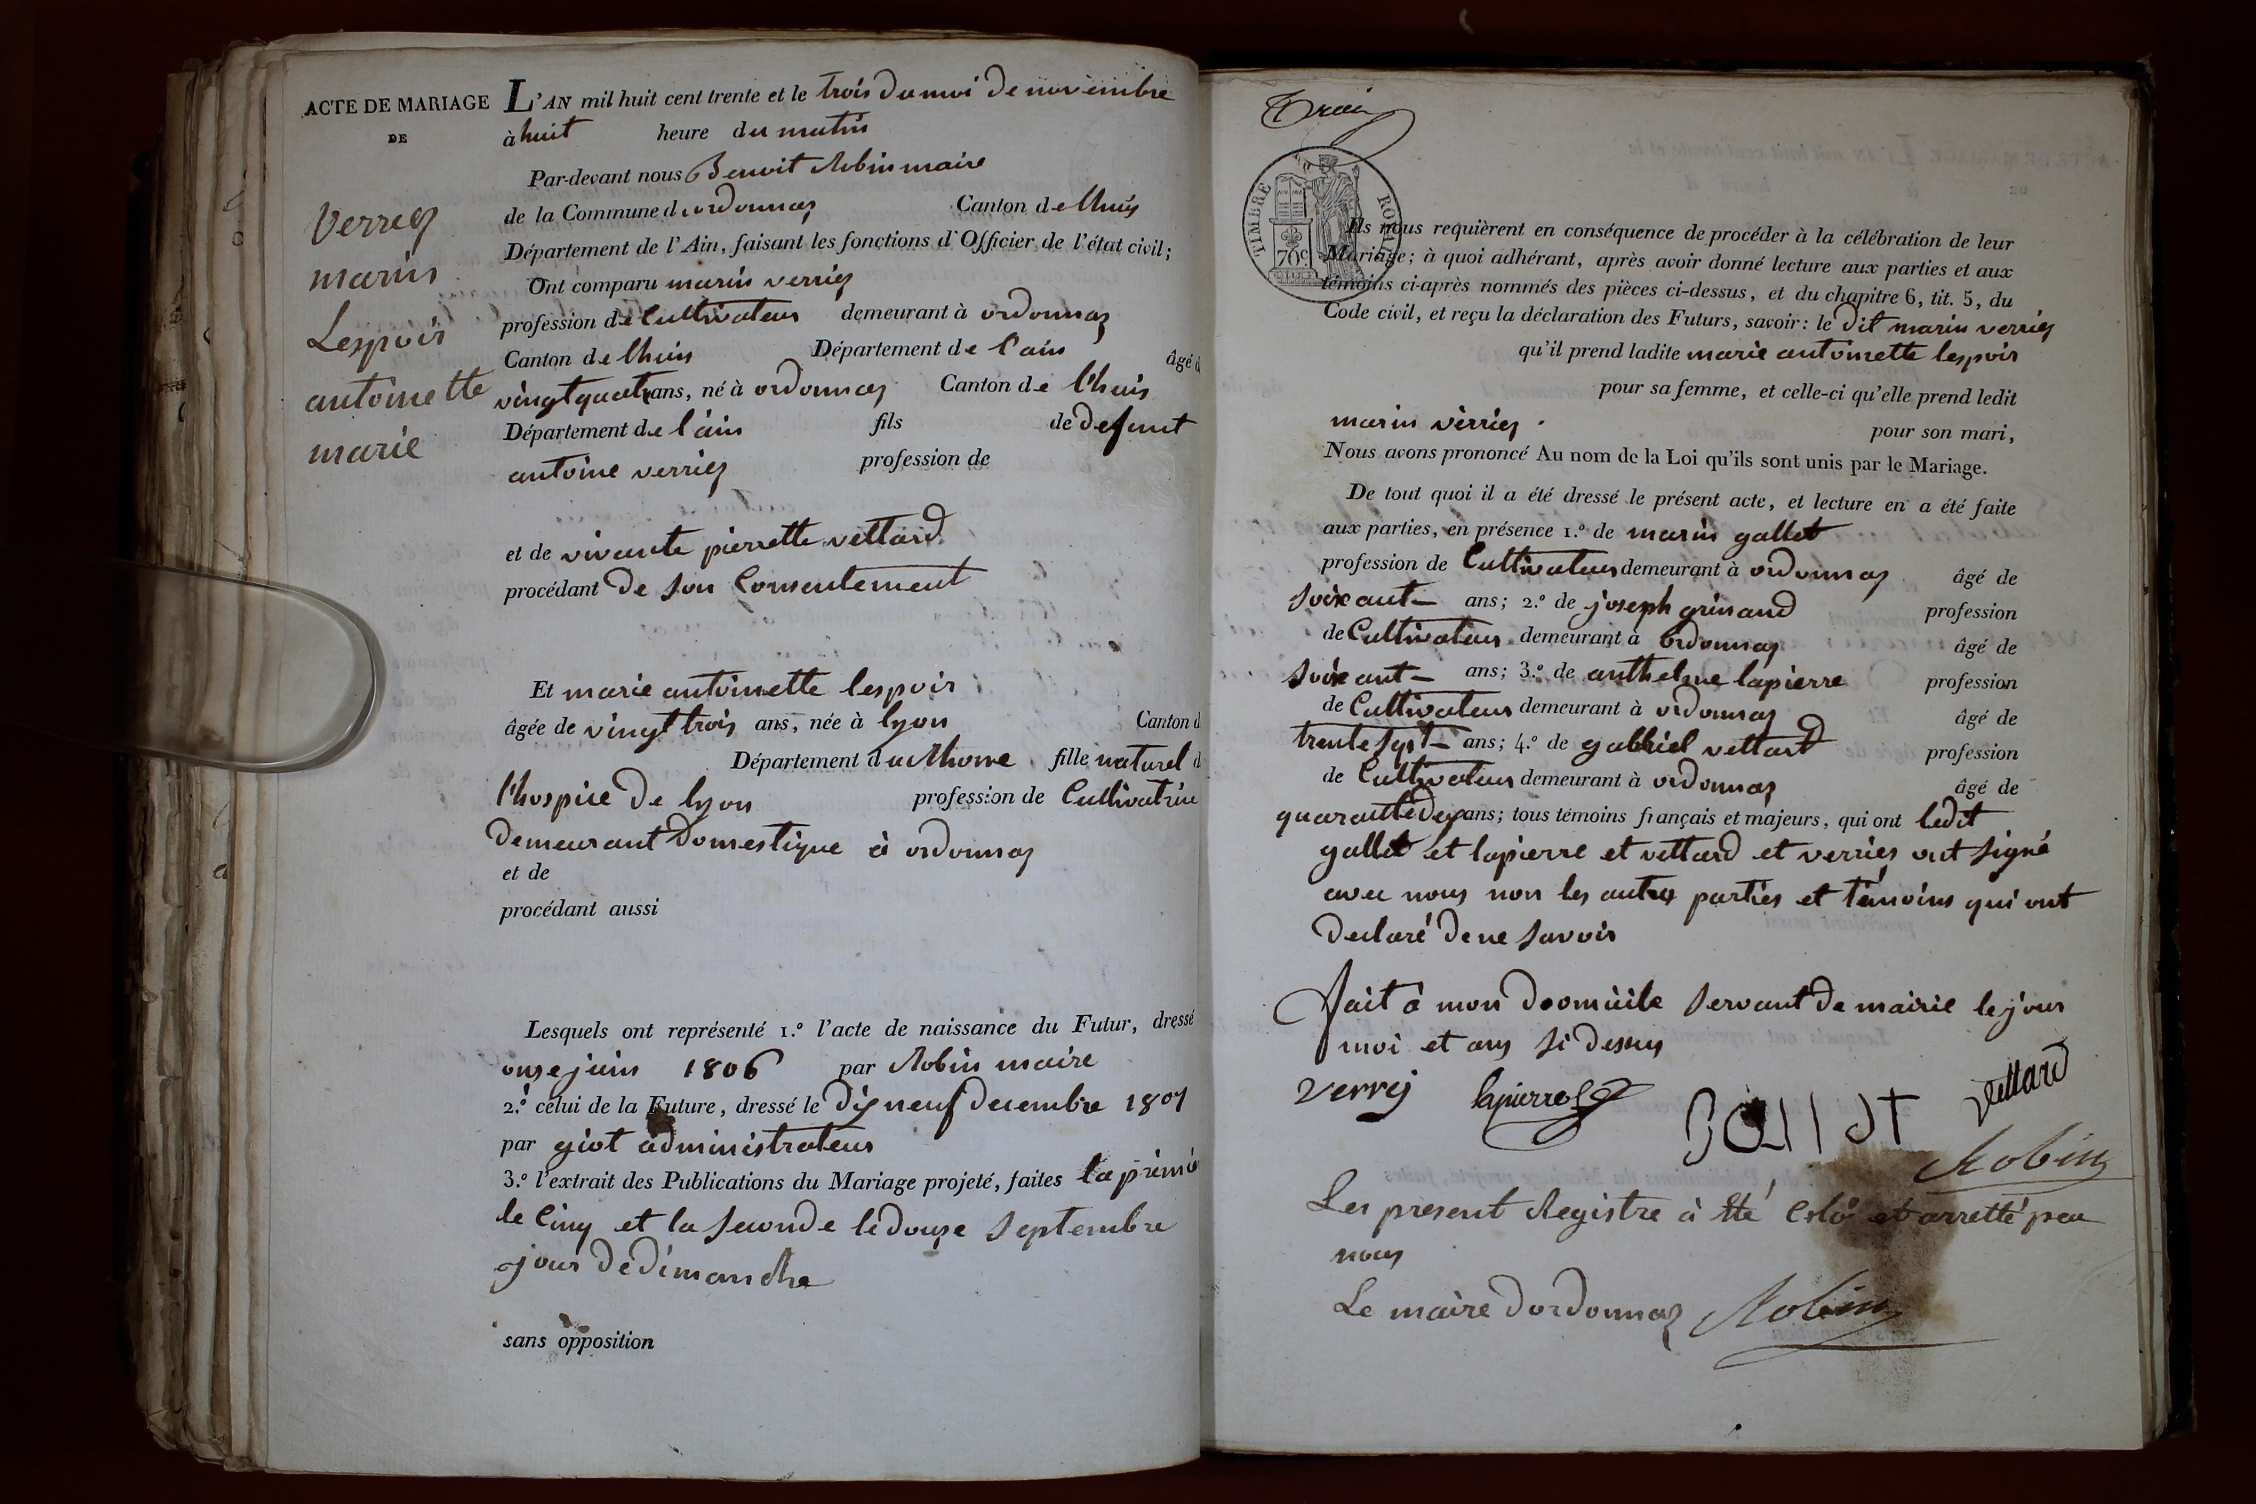 ACTE DE MARIAGE
DE
verriez
marin
Lespoir
antoinette
marie
L'AN mil huit cent trente et le trois du moi de novembre
à huit heure du matin
Par-devant nous Benoit Robin maire
de la Commune d'ordonnaz Canton de lhuis
Département de l'Ain, faisant les fonctions d'Officier de l'état civil;
Ont comparu marin verriez
profession de Cultivateur demeurant à ordonnaz
Canton de lhuis Département de l'ain âgé d
vingt quatre ans, né à ordonnaz Canton de l'huis
Département de l'ain fils de defunt
antoine verriez profession de
et de vivante pierrette vettard
procédant de son Consentement
Et marie antoinette lespoir
âgée de vingt trois ans, née à lyon Canton d
Département du Rhone fille naturel d
l'hospice de lyon profession de Cultivatrice
demeurant domestique à ordonnaz
et de
procédant aussi
Lesquels ont représenté 1.º l'acte de naissance du Futur, dressé
onze juin 1806 par Robin maire
2.º celui de la Future, dressé le dix neuf decembre 1807
par giot administrateur
3.º l'extrait des Publications du Mariage projeté, faites la premie
le Cinq et la seconde le douze Septembre
jour de dimanche
sans opposition
TIMBRE ROYAL
70c
Ils nous requièrent en conséquence de procéder à la célébration de leur
Mariage; à quoi adhérant, après avoir donné lecture aux parties et aux
témoins ci-après nommés des pièces ci-dessus, et du chapitre 6, tit. 5, du
Code civil, et reçu la déclaration des Futurs, savoir: le dit marin verriez
qu'il prend ladite marie antoinette lespoir
pour sa femme, et celle-ci qu'elle prend ledit
marin verriez . pour son mari,
Nous avons prononcé Au nom de la Loi qu'ils sont unis par le Mariage.
De tout quoi il a été dressé le présent acte, et lecture en a été faite
aux parties, en présence 1.º de marin gallet
profession de Cultivateur demeurant à ordonnaz âgé de
soixant ans; 2.º de joseph grinand profession
de Cultivateur demeurant à ordonnaz âgé de
soixant ans; 3.º de anthelme lapierre profession
de Cultivateur demeurant à ordonnaz âgé de
trente sept ans; 4.º de gabriel vettard profession
de Cultivateur demeurant à ordonnaz âgé de
quarante dex ans; tous témoins français et majeurs, qui ont ledit
gallet et lapierre et vettard et verriez ont signé
avec nous non les autres parties et témoins qui ont
declaré de ne savoir
fait à mon domicile servant de mairie le jour
moi et ans si dessus
verrij lapierre gallet vettard
Robin
Les present Registre à été Clo et arretté par
nous
Le maire dordonnaz Robin